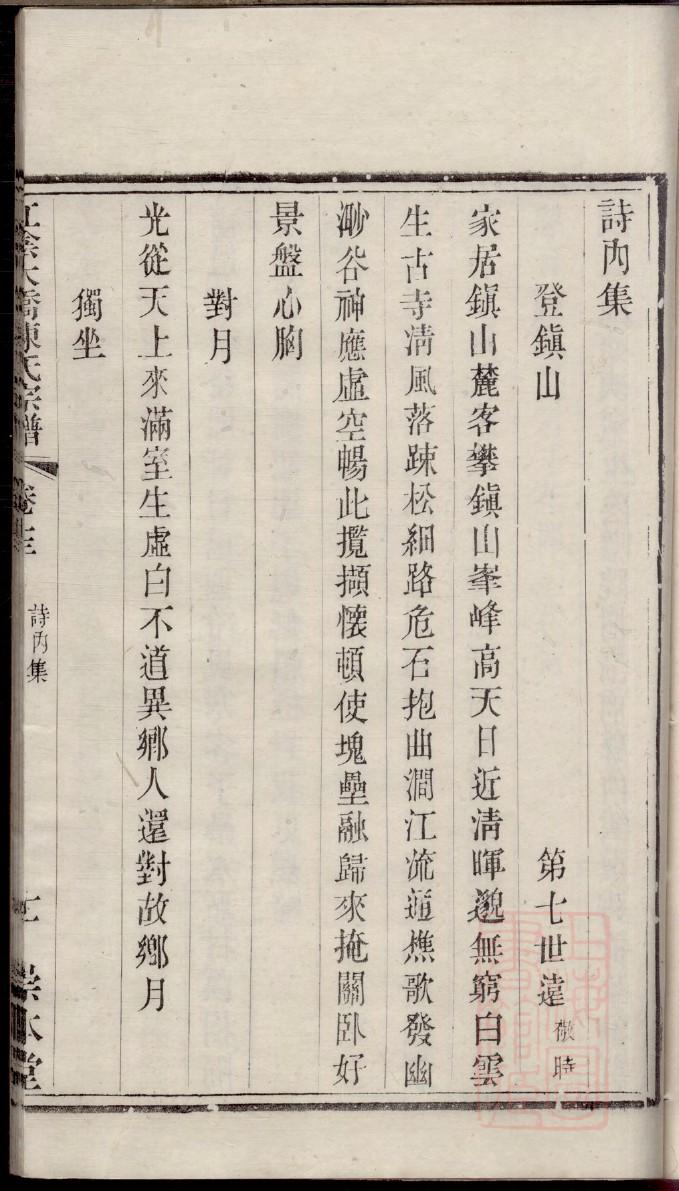 詩內集
登鎮山　第七世遠 敬時
家居鎮山麓客攀鎮山峯峰高天日近淸暉邈無窮白雲
生古寺淸風落踈松細路危石抱曲澗江流通樵歌發幽
渺谷神應虛空暢此攬擷懷頓使塊壘融歸來掩關臥好
景盤心胸
對月
光從天上來滿室生虛白不道異鄉人還對故鄉月
獨坐
江陰大橋陳氏宗譜　卷十三　詩內集　宗本堂